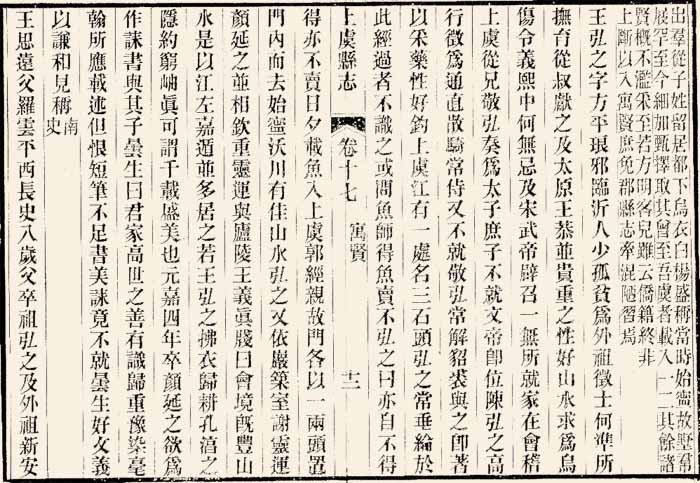 出羣從子姓留居都下烏衣白楊盛稱當時始寧故墅常
展罕至今細加甄擇取其曾至吾虞者載入一二其餘諸
賢槪不濫采至若方明客兒雖云僑籍終非
土斷以入寓賢庶免郡縣志牽混陋習焉
王弘之字方平琅邪臨沂人少孤貧爲外祖徵士何準所
撫育從叔獻之及太原王恭並貴重之性好山水求爲烏
傷令義熙中何無忌及宋武帝辟召一無所就家在會稽
上虞從兄敬弘奏爲太子庶子不就文帝卽位陳弘之高
行徵爲通直散騎常侍又不就敬弘常解貂裘與之卽著
以采藥性好釣上虞江有一處名三石頭弘之常垂綸於
此經過者不識之或問魚師得魚賣不弘之曰亦自不得
得亦不賣日夕載魚入上虞郭經親故門各以一兩頭置
上虞縣志 卷十七 寓賢 十二
門內而去始寧沃川有佳山水弘之又依巖築室謝靈運
顏延之並相欽重靈運與廬陵王義眞牋曰會境旣豐山
水是以江左嘉遁並多居之若王弘之拂衣歸耕孔淳之
隱約窮岫眞可謂千載盛美也元嘉四年卒顏延之欲爲
作誄書與其子曇生曰君家高世之善有識歸重豫染毫
翰所應載述但恨短筆不足書美誄竟不就曇生好文義
以謙和見稱南史
王思遠父羅雲平西長史八歲父卒祖弘之及外祖新安